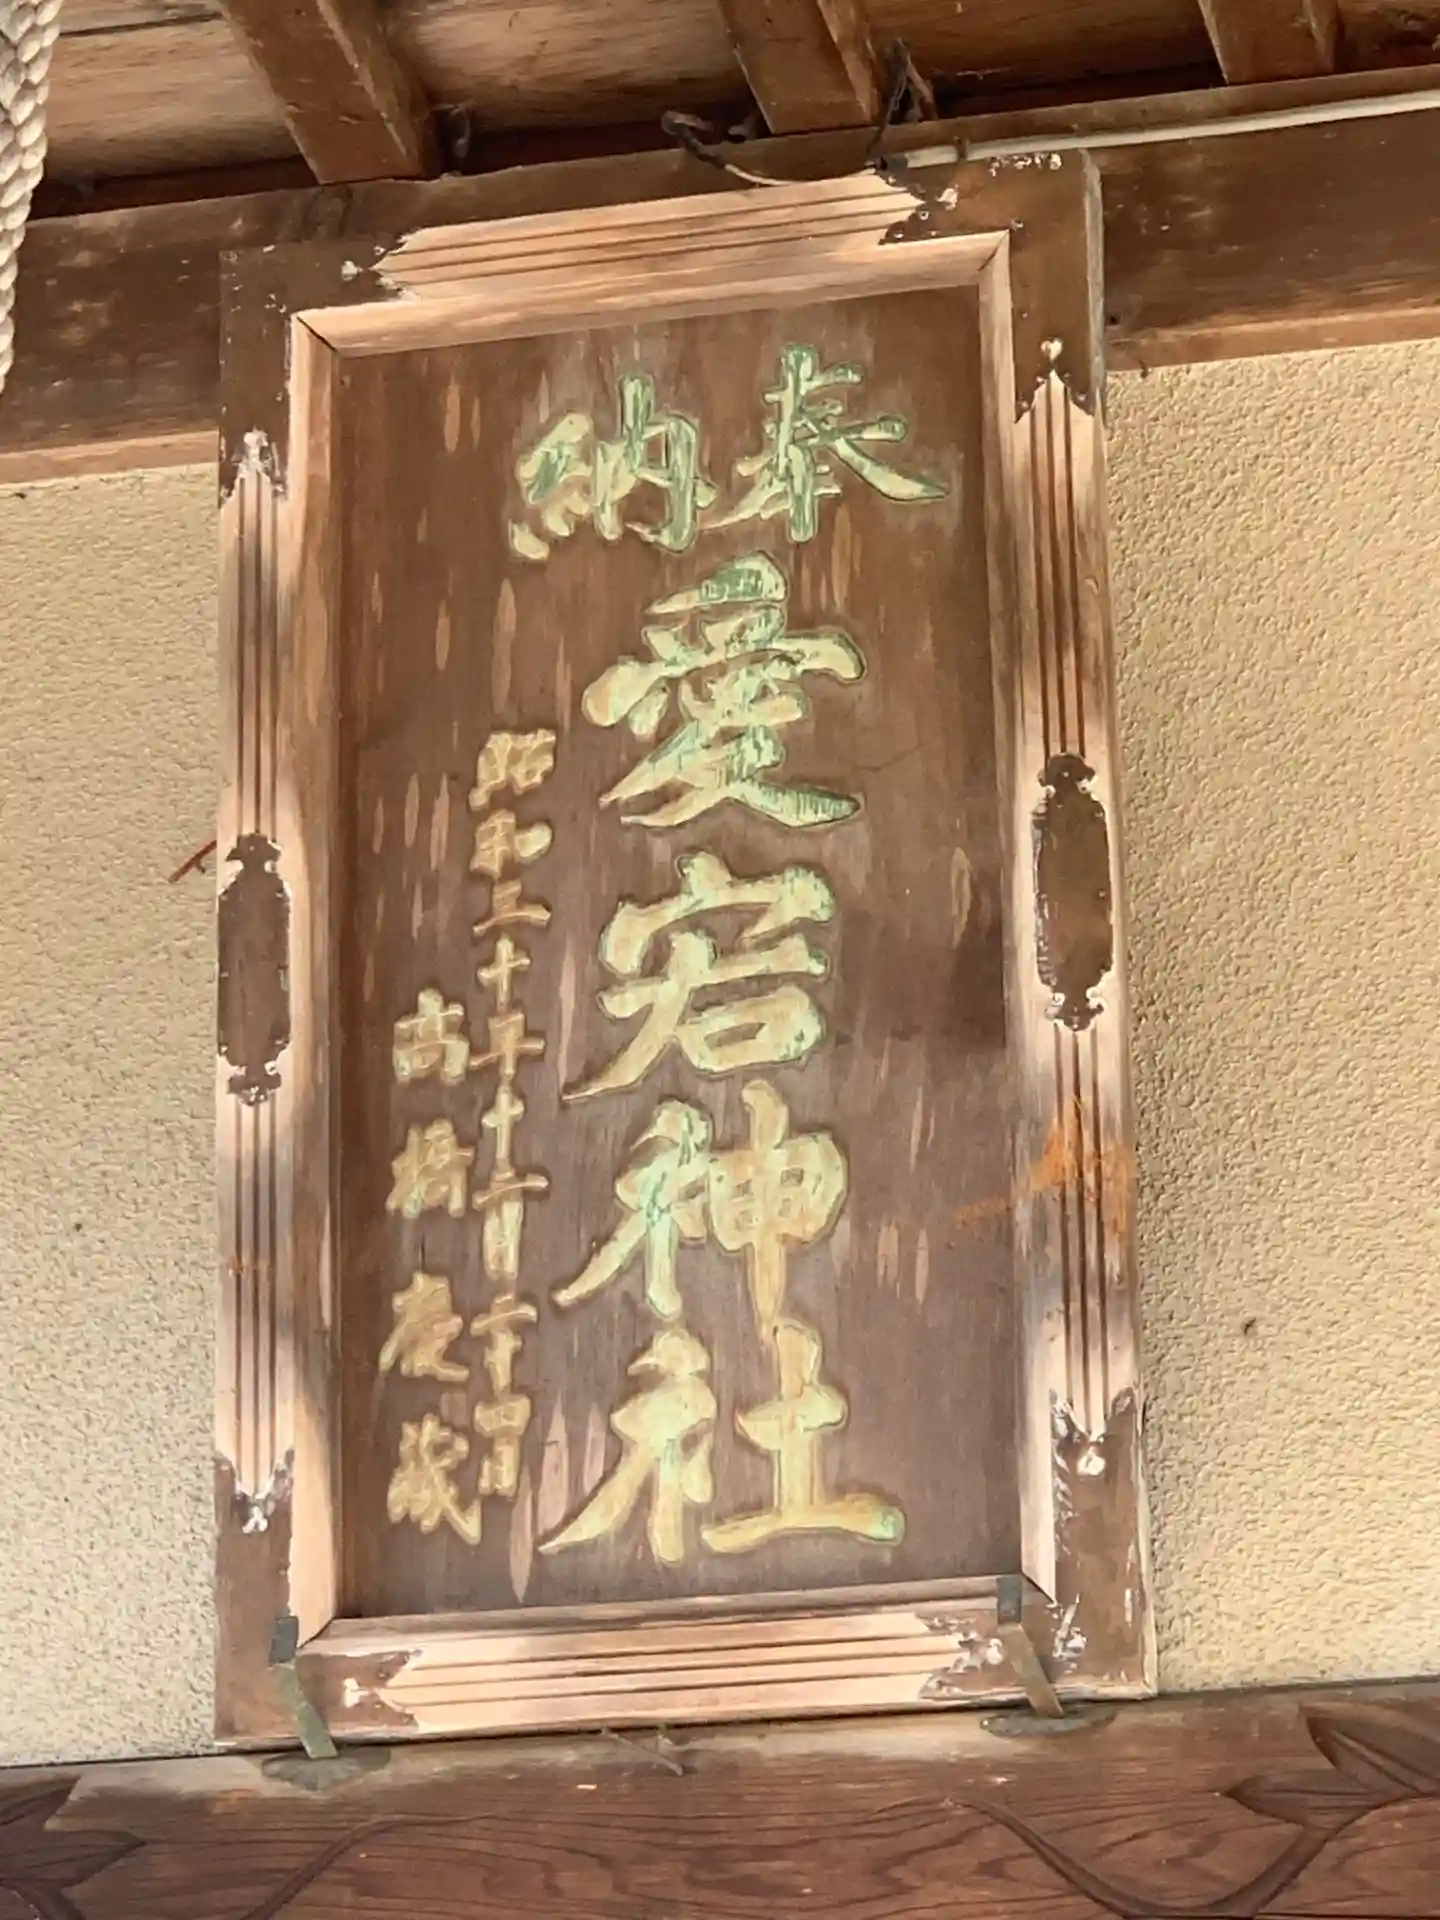 奉納
愛宕神社
昭和三十年十二月二十四日
高橋慶